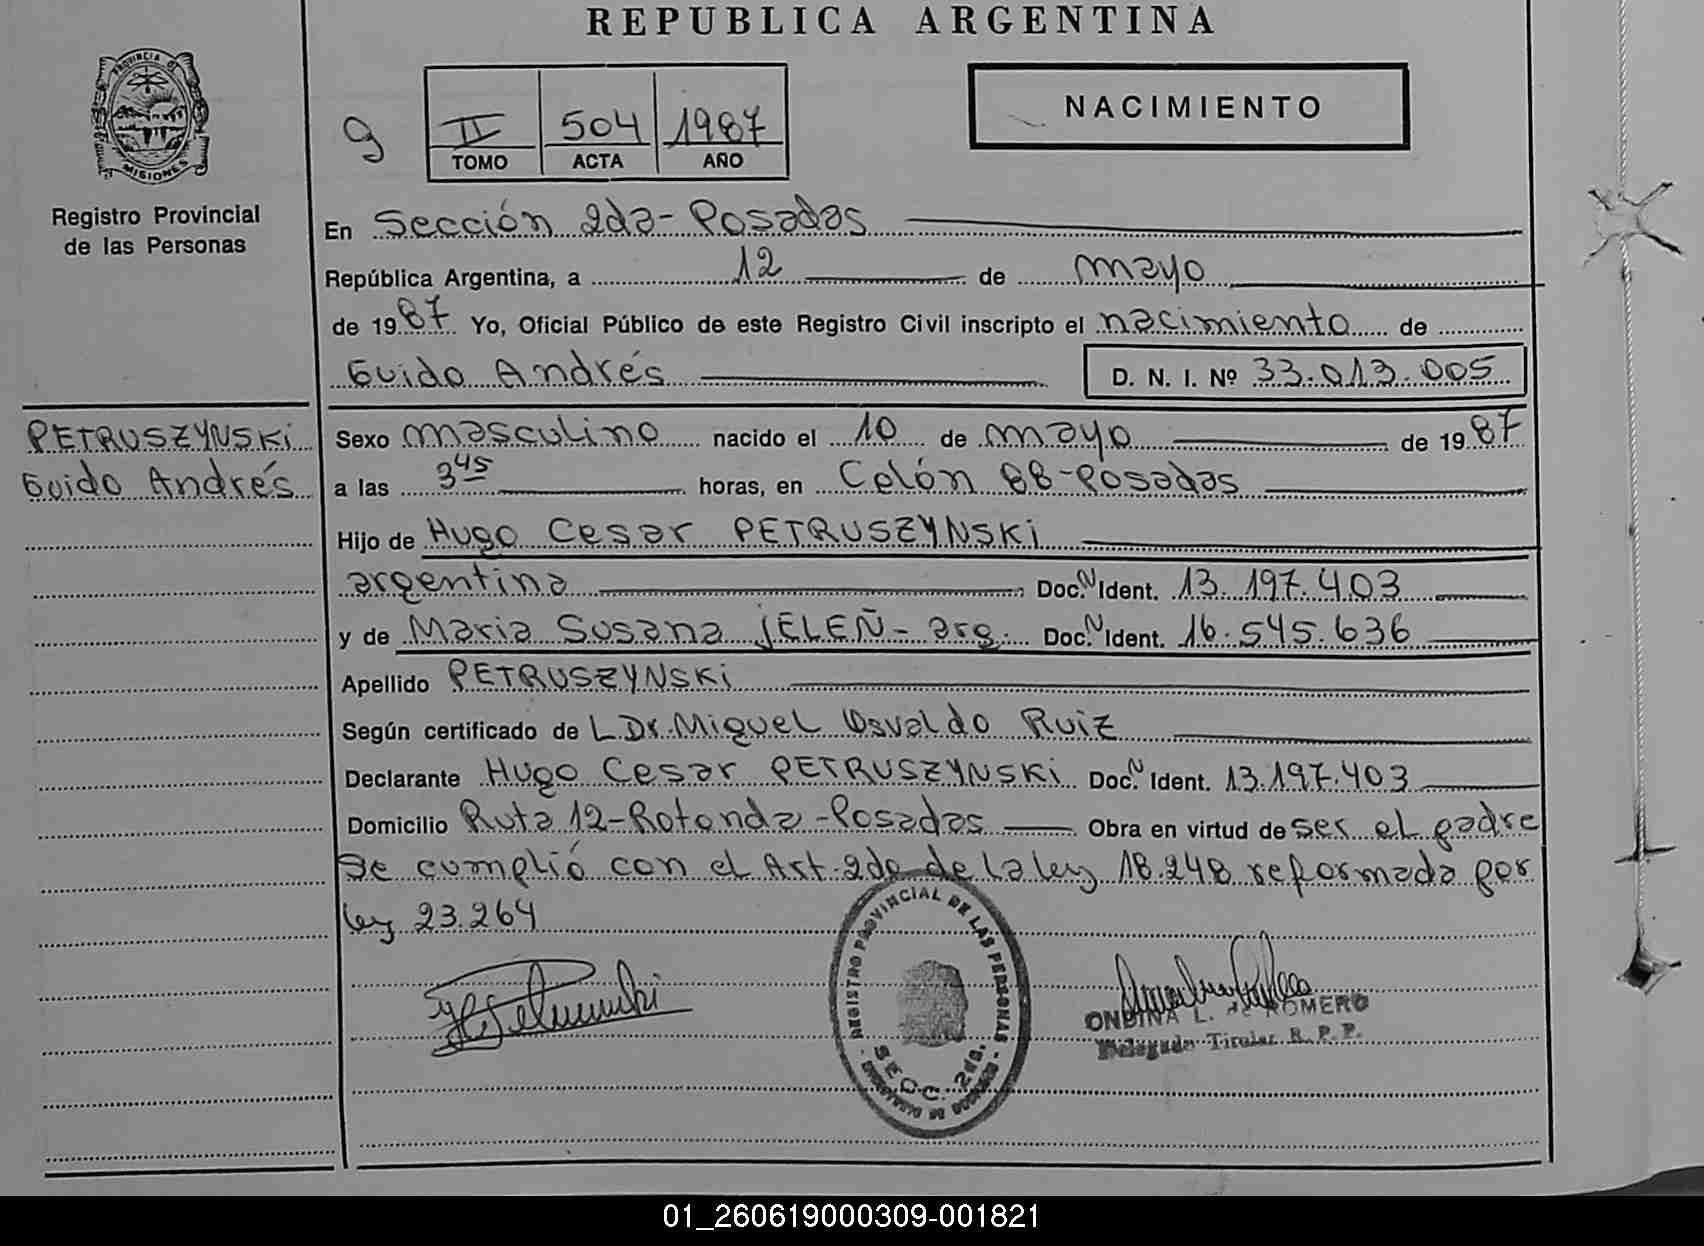 REPUBLICA ARGENTINA
PROVINCIA D
MISIONES
Registro Provincial
de las Personas
9
II 504 1987
TOMO ACTA AÑO
NACIMIENTO
En Sección 2da - Posadas
República Argentina, a 12 de mayo
de 1987 Yo, Oficial Público de este Registro Civil inscripto el nacimiento de
Guido Andrés D. N. I. Nº 33.013.005
PETRUSZYNSKi
Guido Andrés
Sexo masculino nacido el 10 de mayo de 1987
a las 3 45 horas, en Colón 88 - Posadas
Hijo de Hugo Cesar PETRUSZYNSKi
argentina Doc. N Ident. 13.197.403
y de Maria Susana jELEÑ - arg. Doc. N Ident. 16.545.636
Apellido PETRUSZYNSKi
Según certificado de L Dr. Miguel Osvaldo Ruiz
Declarante Hugo Cesar PETRUSZYNSKi Doc. N Ident. 13.197.403
Domicilio Ruta 12 - Rotonda - Posadas Obra en virtud de ser el padre
Se cumplió con el Art. 2do de la ley 18.248 reformada por
ley 23.264
REGISTRO PROVINCIAL DE LAS PERSONAS
SECC. 2da.
ONDINA L. de ROMERO
Delegado Titular R. P. P.
01_260619000309-001821